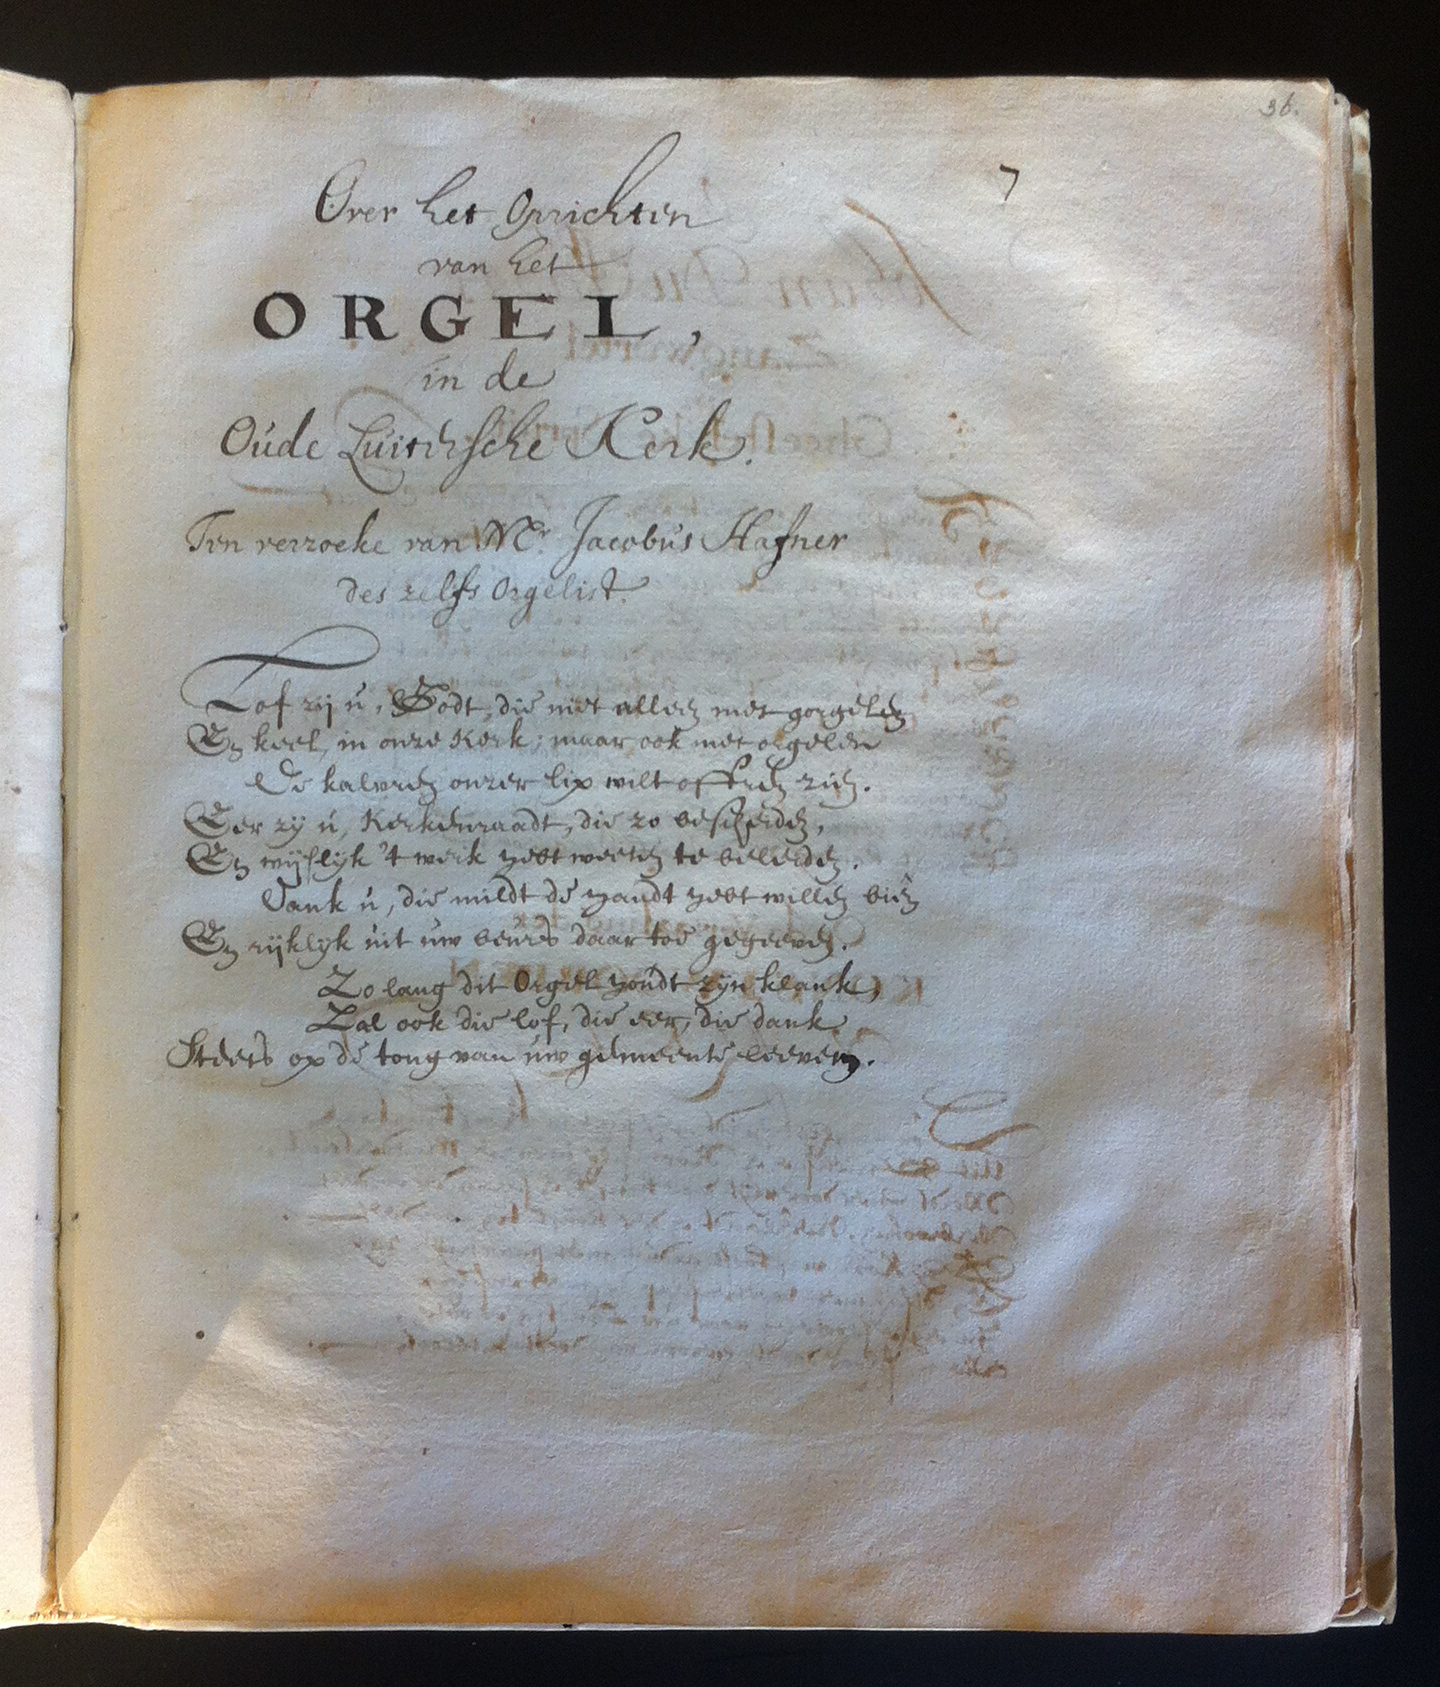 36.
7
Over het Oprichten
van het
ORGEL,
in de
Oude Luitersche Kerk.
Ten verzoeke van Mr. Jacobus Hafner
des zelfs Orgelist.
Lof zij u, Godt, die niet alleen met gorgelen
En keel, in onze Kerk; maar ook met orgelen
De kalvren onzer lip wilt offren zien.
Eer zy u, Kerkenraadt, die zo bescheiden,
En wijslyk 't werk hebt weeten te beleiden.
Dank u, die mildt de handt hebt willen biên
En rijklyk uit uw beurs daar toe gegeeven.
Zo lang dit Orgel houdt zyn klank,
Zal ook die lof, die eer, die dank
Steets op de tong van uw gemeente leeven.